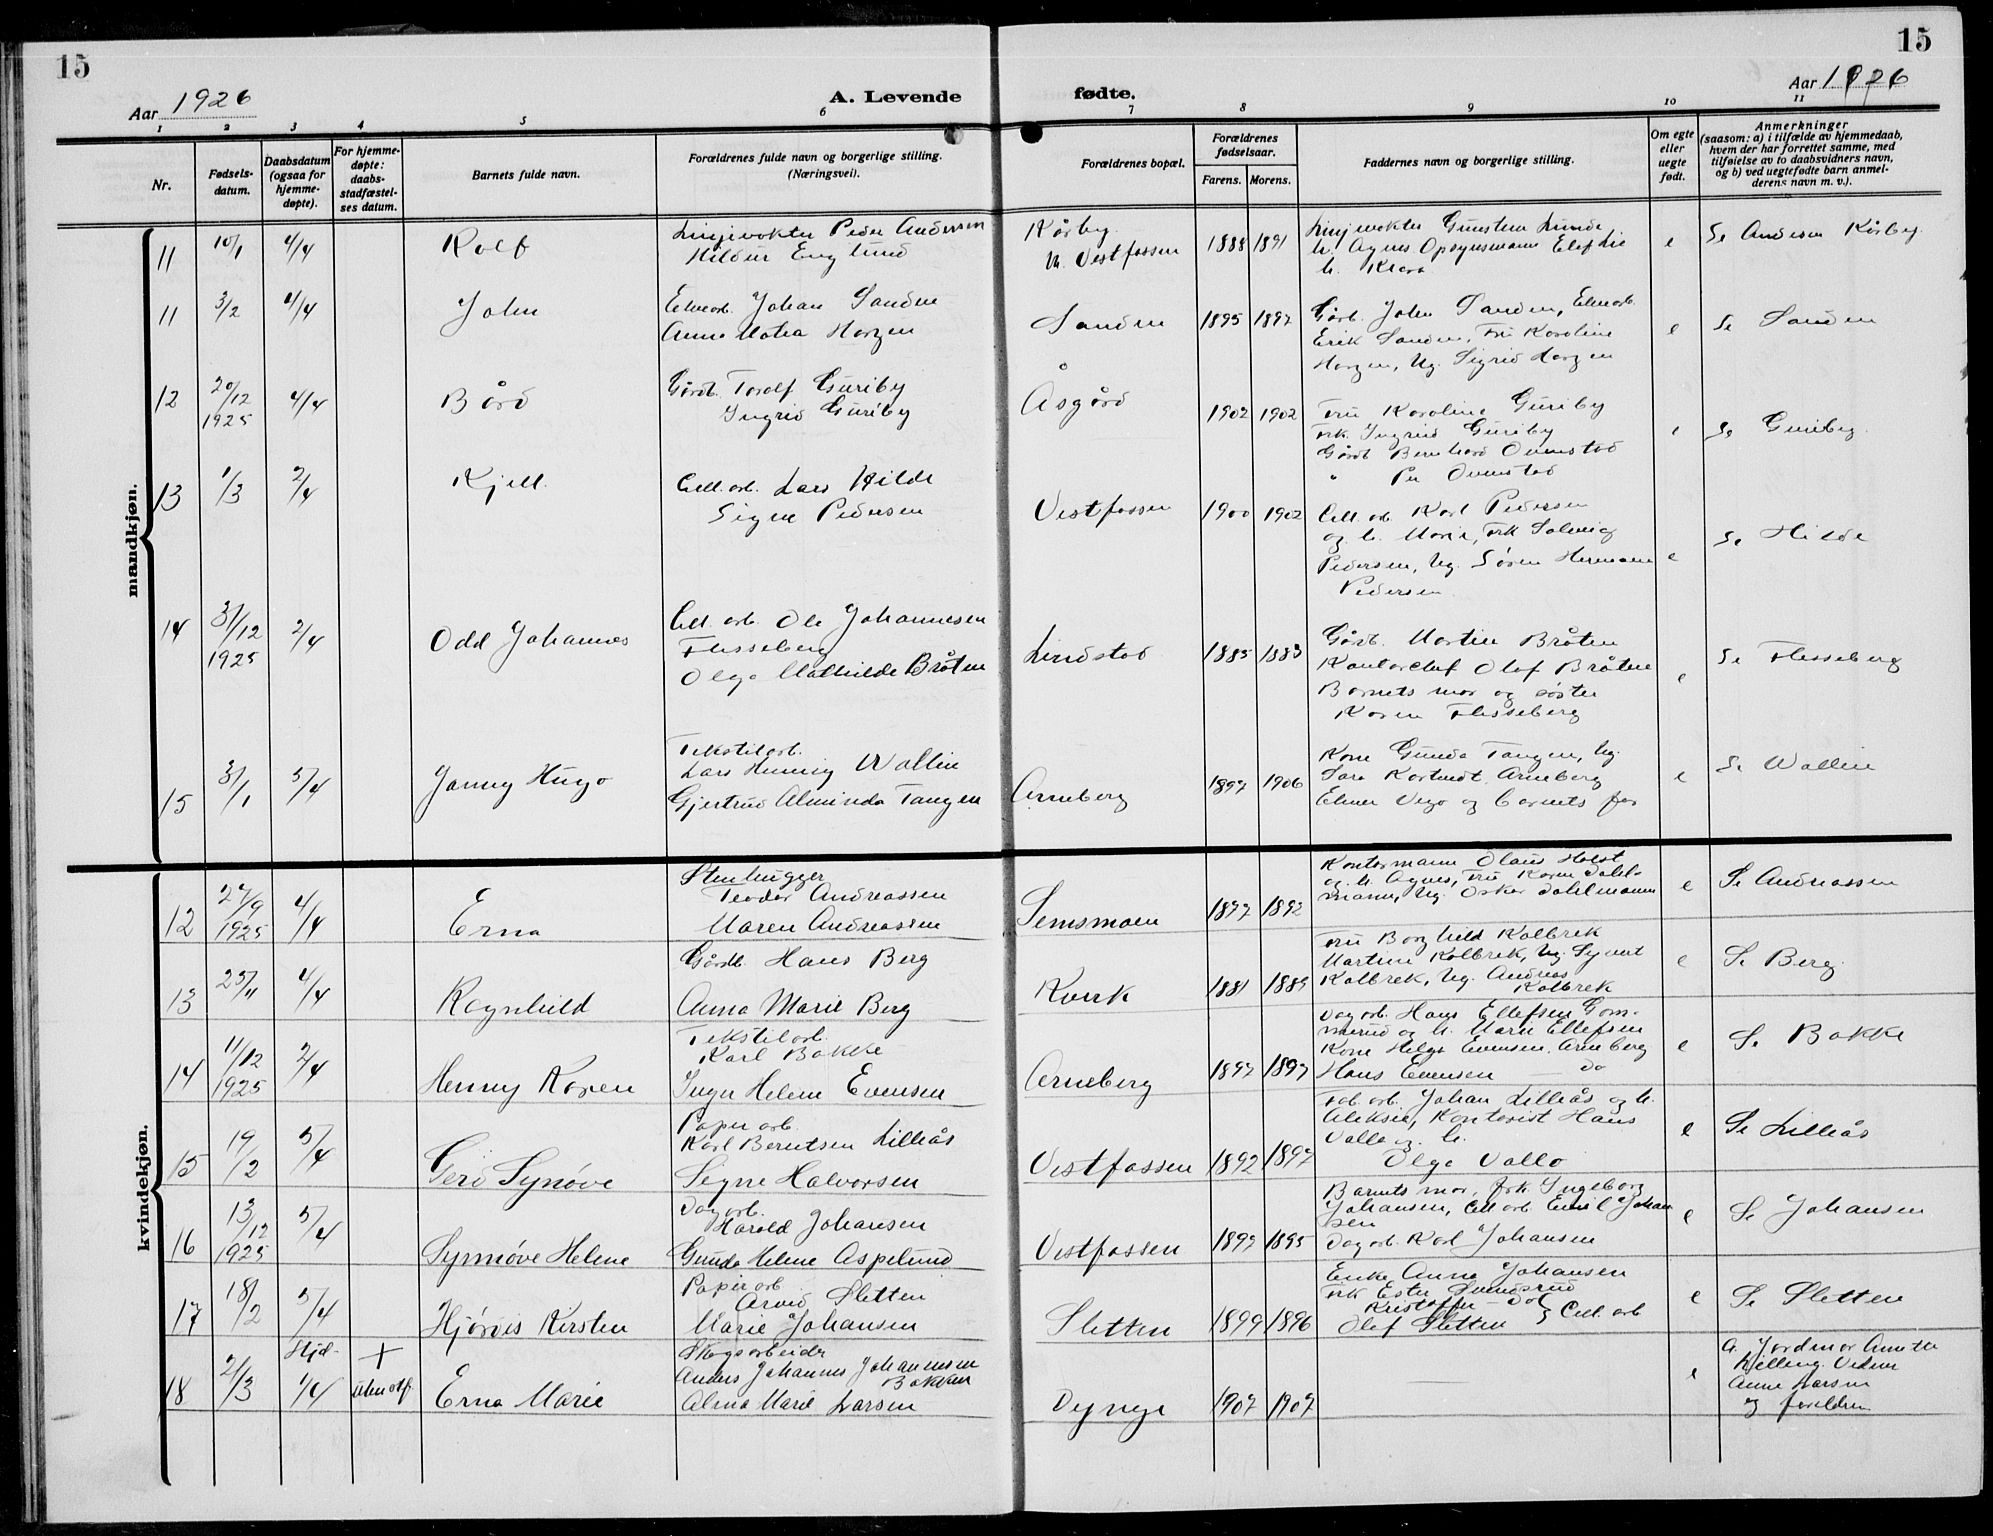 15
15
Aar 1926
A. Levende fødte.
Aar 1926
1 2 3 4 5 6 7 8 9 10 11
Nr.
Fødsels-
datum.
Daabsdatum
(ogsaa for
hjemme-
døpte).
For hjemme-
døpte:
daabs-
stadfæstel-
ses datum.
Barnets fulde navn.
Forældrenes fulde navn og borgerlige stilling.
(Næringsvei).
Forældrenes bopæl.
Forældrenes
fødselsaar.
Farens. Morens.
Faddernes navn og borgerlige stilling.
Om egte
eller
uegte
født.
Anmerkninger
(saasom: a) i tilfælde av hjemmedaab,
hvem der har forrettet samme, med
tilføielse av to daabsvidners navn,
og b) ved uegtefødte barn anmel-
derens navn m. v.).
mandkjøn.
11 10/1 4/4 Rolf
Linjevokter Peder Andersen
Hildur Englund
Kårby.
Vestfossen
1888 1891
Linjevokter Gunsten Lunde
h. Agnes Opsynsmann Elef Lie
h. Klara
e
Se Andersen Kårby.
11 3/2 4/4 John
Johan Sanden
Anne Matea Horgen
Sanden
1895 1897
Gårb. John Sanden,
Erik Sanden, Fru Karoline
Horgen, Ug. Sigrid Horgen
e
Se Sanden
12 20/12 1925 4/4 Bård
Gårdb. Torolf Guriby
Ingrid Guriby
Åsgård
1902 1902
Fru Karoline Guriby
Frk. Ingrid Guriby
Gårdb Bernhard Ormstad
" Per Ormstad
e
Se Guriby.
13 1/3 2/4 Kjell
Cell. arb. Lars Hilde
Signe Pedersen
Vestfossen
1900 1902
Cell. arb. Karl Pedersen
og h. Marie, Frk Solveig
Pedersen, Ug. Søren Hermann
Pedersen
e
Se Hilde
14 31/12 1925 2/4 Odd Johannes
Cell. arb. Ole Johannesen
Flesseberg
Olga Mathilde Bråten
Lindstad
1885 1883
Gårb. Martin Bråten
Kontorchef Olof Bråten
Barnets mor og søster
Karen Flesseberg
e
Se Flesseberg
15 31/1 5/4 Janny Hugo
Tekstilarb.
Lars Henning Wallin
Gjertrud Alminda Tangen
Arneberg
1897 1906
Kone Gunda Tangen, Ug.
Sara Arneberg
og barnets far
e
Se Wallin
kvindekjøn.
12 27/9 1925 4/4 Erna
Stenhugger
Teodor Andreassen
Maren Andreassen
Semsmoen
1897 1892
Kontormann Olaus Holst
og h. Agnes, Fru Karen Dahl-
mann, Ug. Oskar Dahlmann
e
Se Andreassen
13 25/11 4/4 Ragnhild
Gårdb. Hans Berg
Anna Marie Berg
Kverk
1881 1889
Fru Borghild Kolbrek
Martin Kolbrek, Ug. Syvert
Kolbrek, Ug. Andreas
Kolbrek
e
Se Berg.
14 11/12 1925 2/4 Henny Karen
Tekstilarb.
Karl Bakke
Inga Helene Evensen
Arneberg
1897 1897
Dagarb. Hans Ellefsen Gom-
merud og h. Marie Ellefsen
Kone Helga Evensen, Arneberg
Hans Evensen do
e
Se Bakke
15 19/2 5/4 Gerd Synøve
Papir arb.
Karl Berntsen Lilleås
Signe Halvorsen
Vestfossen
1892 1897
Fab. arb. Johan Lilleås og h.
Aleksia, Kontorist Hans
Valla og h.
Olga Valla
e
Se Lilleås
16 13/12 1925 5/4 Synnøve Helene
Dagarb.
Harald Johansen
Gunda Helene Aspelund
Vestfossen
1897 1895
Barnets mor, frk. Ingeborg
Johansen, Cell arb Emil Johan
sen
Dagarb. Karl Johansen
e
Se Johansen
17 18/2 5/4 Hjørdis Kirsten
Papir arb
Arvid Sletten
Marie Johansen
Sletten
1899 1896
Enke Anna Johansen
Frk Ester Smedsrud
Kristoffer - Do
Olef Sletten } Cell. arb
e
Se Sletten
18 2/3 Hjd. 1/4 + Erna Marie
Skogsarbeider
Anders Johannes Johannesen
Bakken
Alma Marie Larsen
Dynge
1907 1907
e
a. Jordmor Anette
Killing. Vidner
Anne Larsen
og foreldren